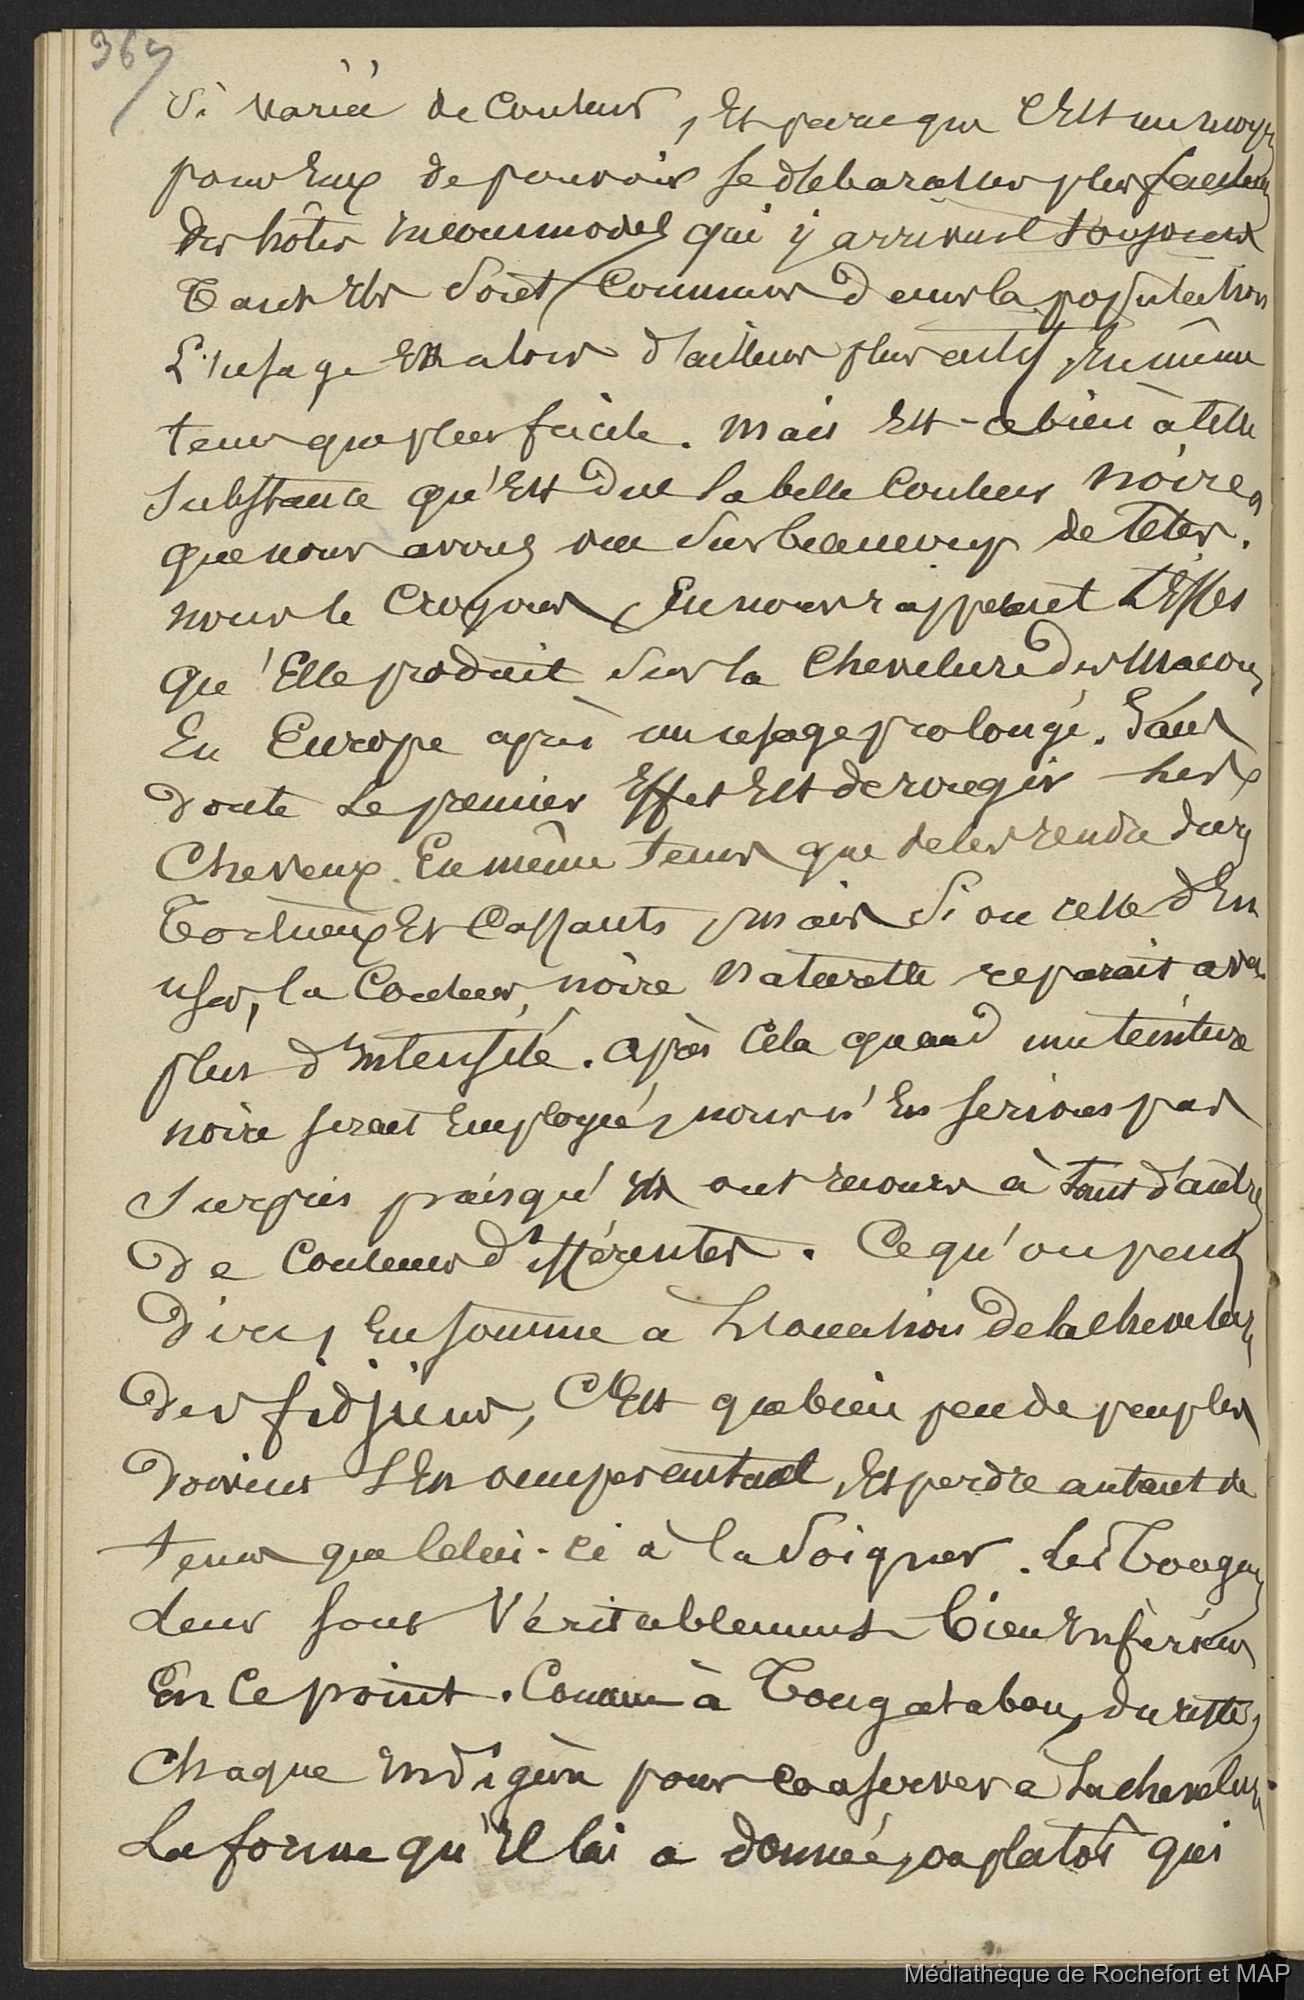 365
si variée de couleurs, et parce que c'est un moyen
pour eux de pouvoir se débarasser plus facilem
des hôtes incommodes qui y arrivent toujours
tant ils sont communs dans la population
L'usage est alors d'ailleurs plus actif en même
tems que plus facile. mais est-ce bien à telle
substance qu'est due la belle couleur noire,
que nous avons vu sur beaucoup de têtes.
nous le croyons, en nous rappelant l'effet
qu'elle produit sur la chevelure des macons
En Europe après un usage prolongé. Sans
doute le premier effet est de rougir les
cheveux en même tems que de les rendre durs
tortueux et cassants, mais si on cesse d'en
user, la couleur noire naturelle reparait avec
plus d'intensité. après cela quand une teinture
noire serait employée, nous n'en serions pas
surpris puisqu'ils ont recours à tant d'autres
de couleurs différentes. Ce qu'on peut
dire, en somme a l'occasion de la chevelure
des fidjiens, c'est que bien peu de peuples
doivent s'en occuper autant, et perdre autant de
tems que celui-ci à la soigner. Les Tongans
leur sont véritablement bien inférieurs
En ce point. Comme à Tongatabou, du reste,
chaque indigène pour conserver à sa chevelure
La forme qu'il lui a donnée, ou plutôt qui
Médiathèque de Rochefort et MAP